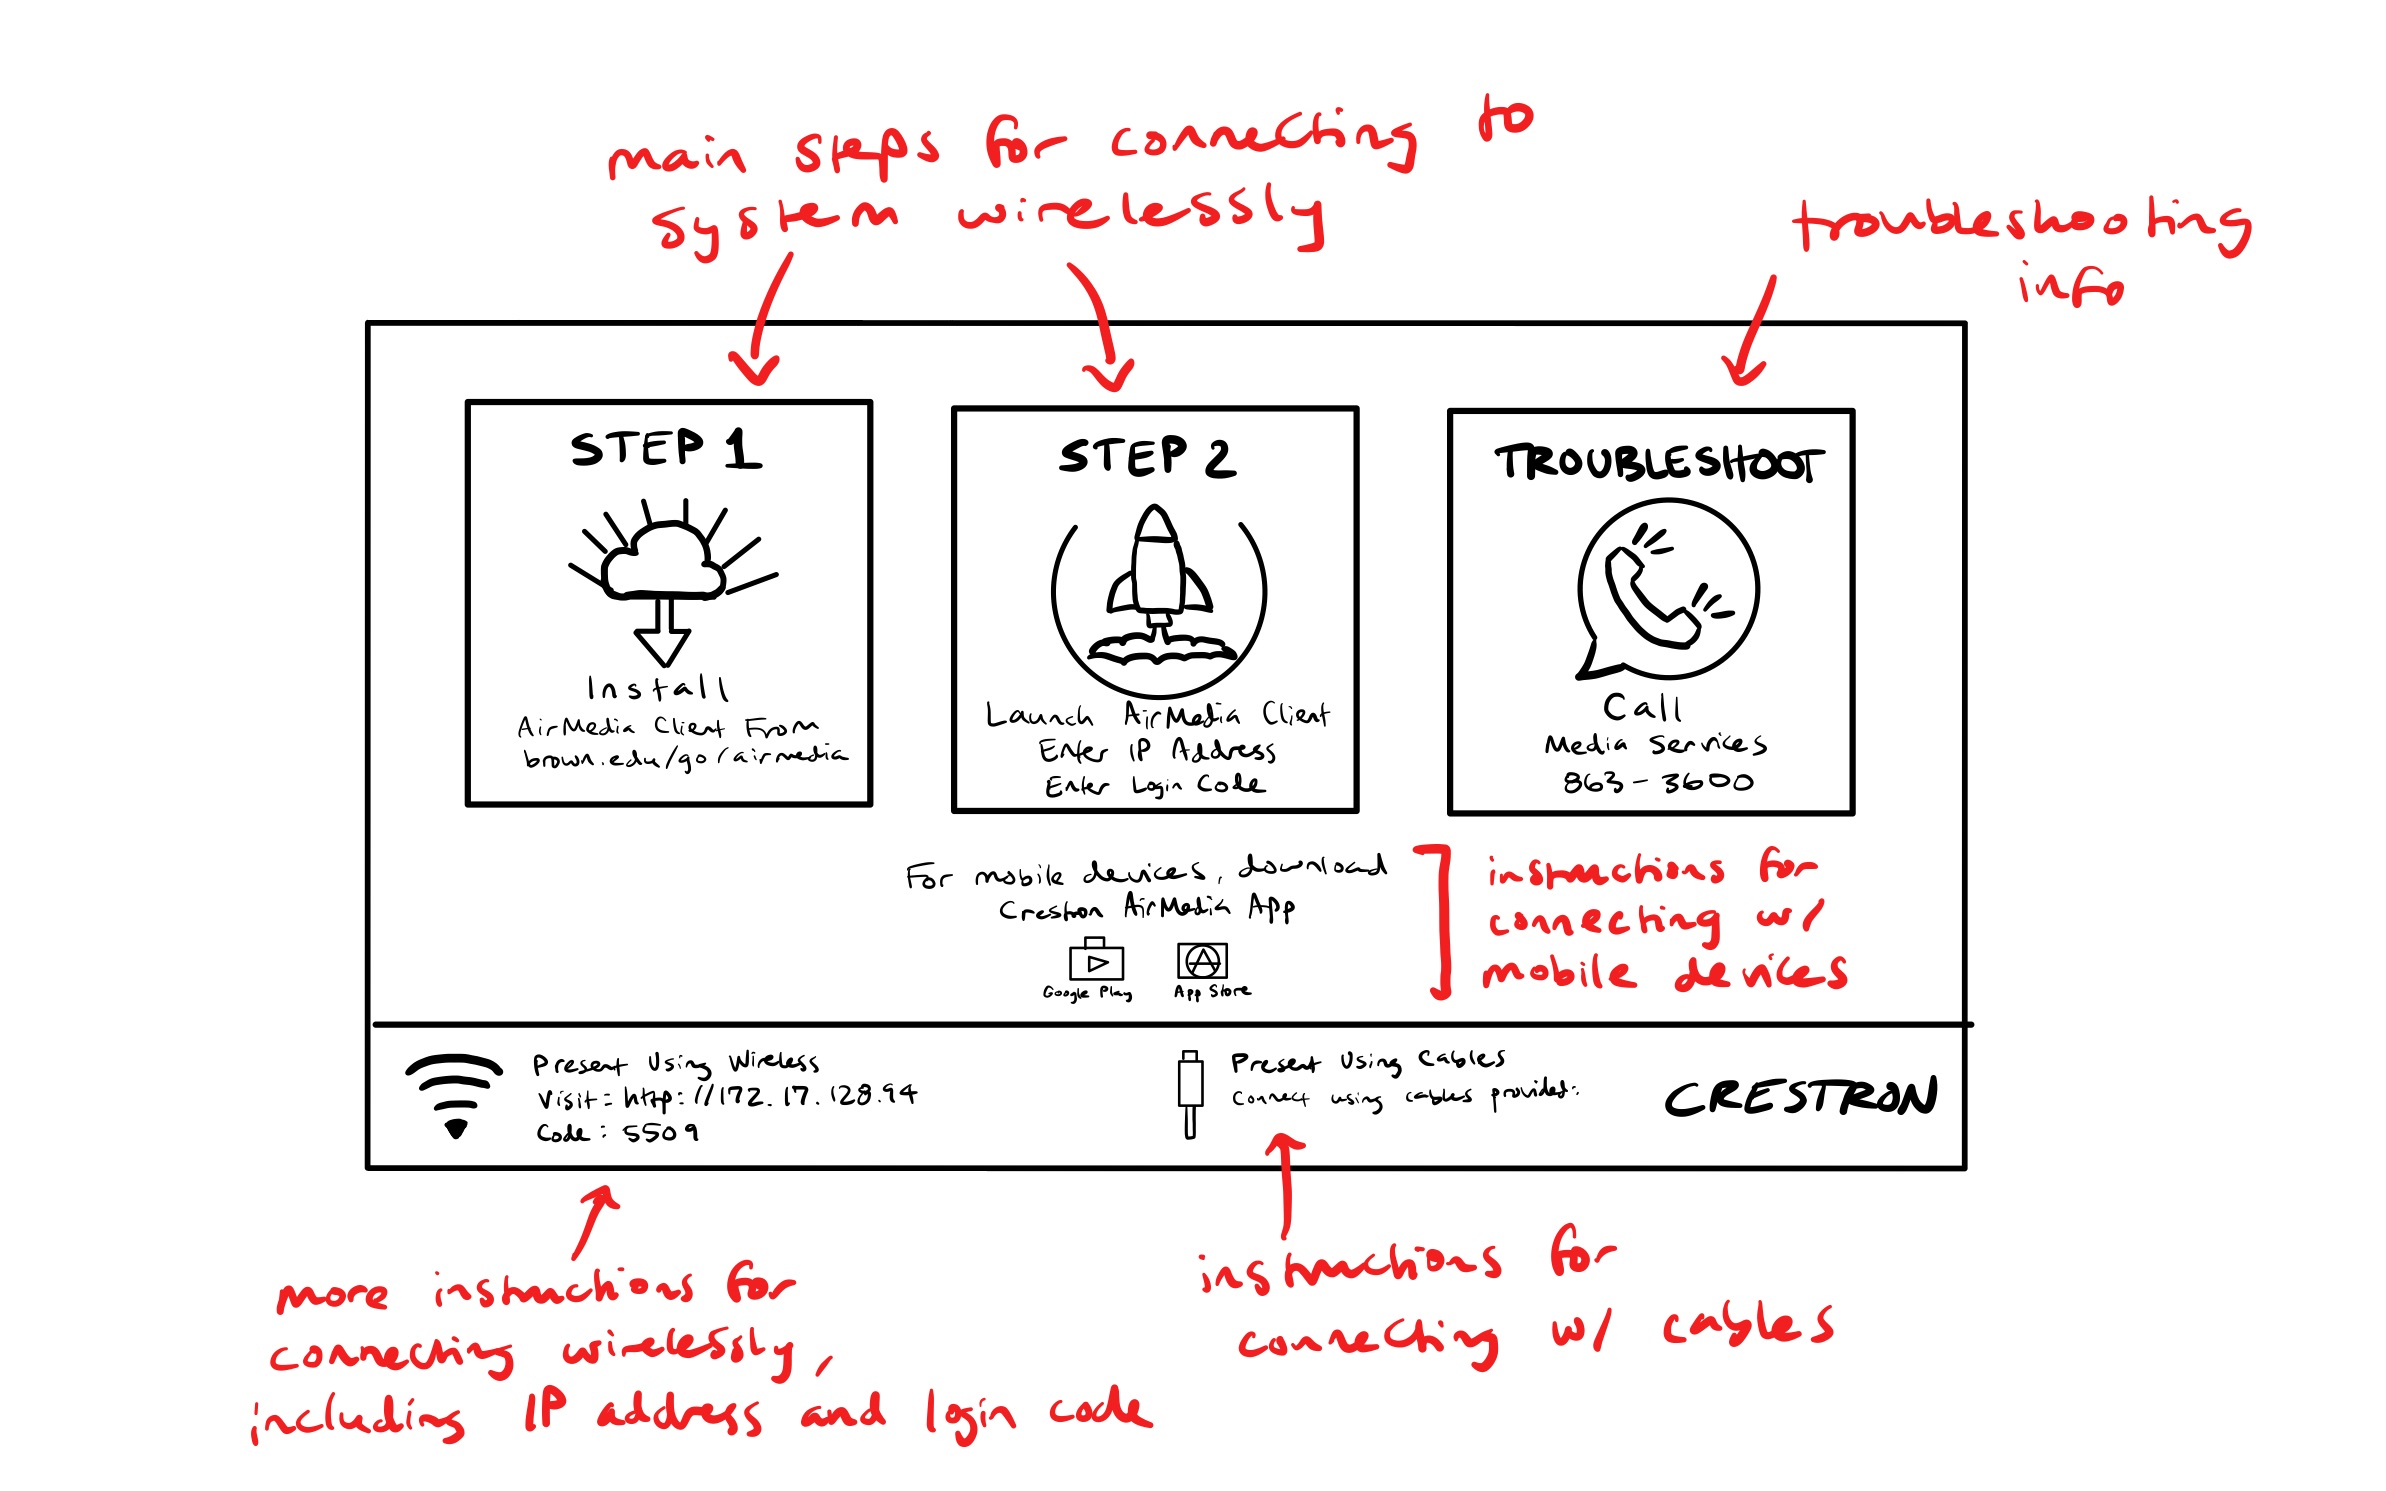 main steps for connecting to
system wirelessly
troubleshooting
info
STEP 1
Install
AirMedia Client From
brown.edu/go/airmedia
STEP 2
Launch AirMedia Client
Enter IP Address
Enter Login Code
TROUBLESHOOT
Call
Media Services
863-3600
For mobile devices, download
Crestron AirMedia App
Google Play
App Store
instructions for
connecting w/
mobile devices
Present Using Wireless
Visit: http://172.17.128.94
Code: 5509
Present Using Cables
Connect using cables provided:
CRESTRON
more instructions for
connecting wirelessly,
including IP address and login code
instructions for
connecting w/ cables